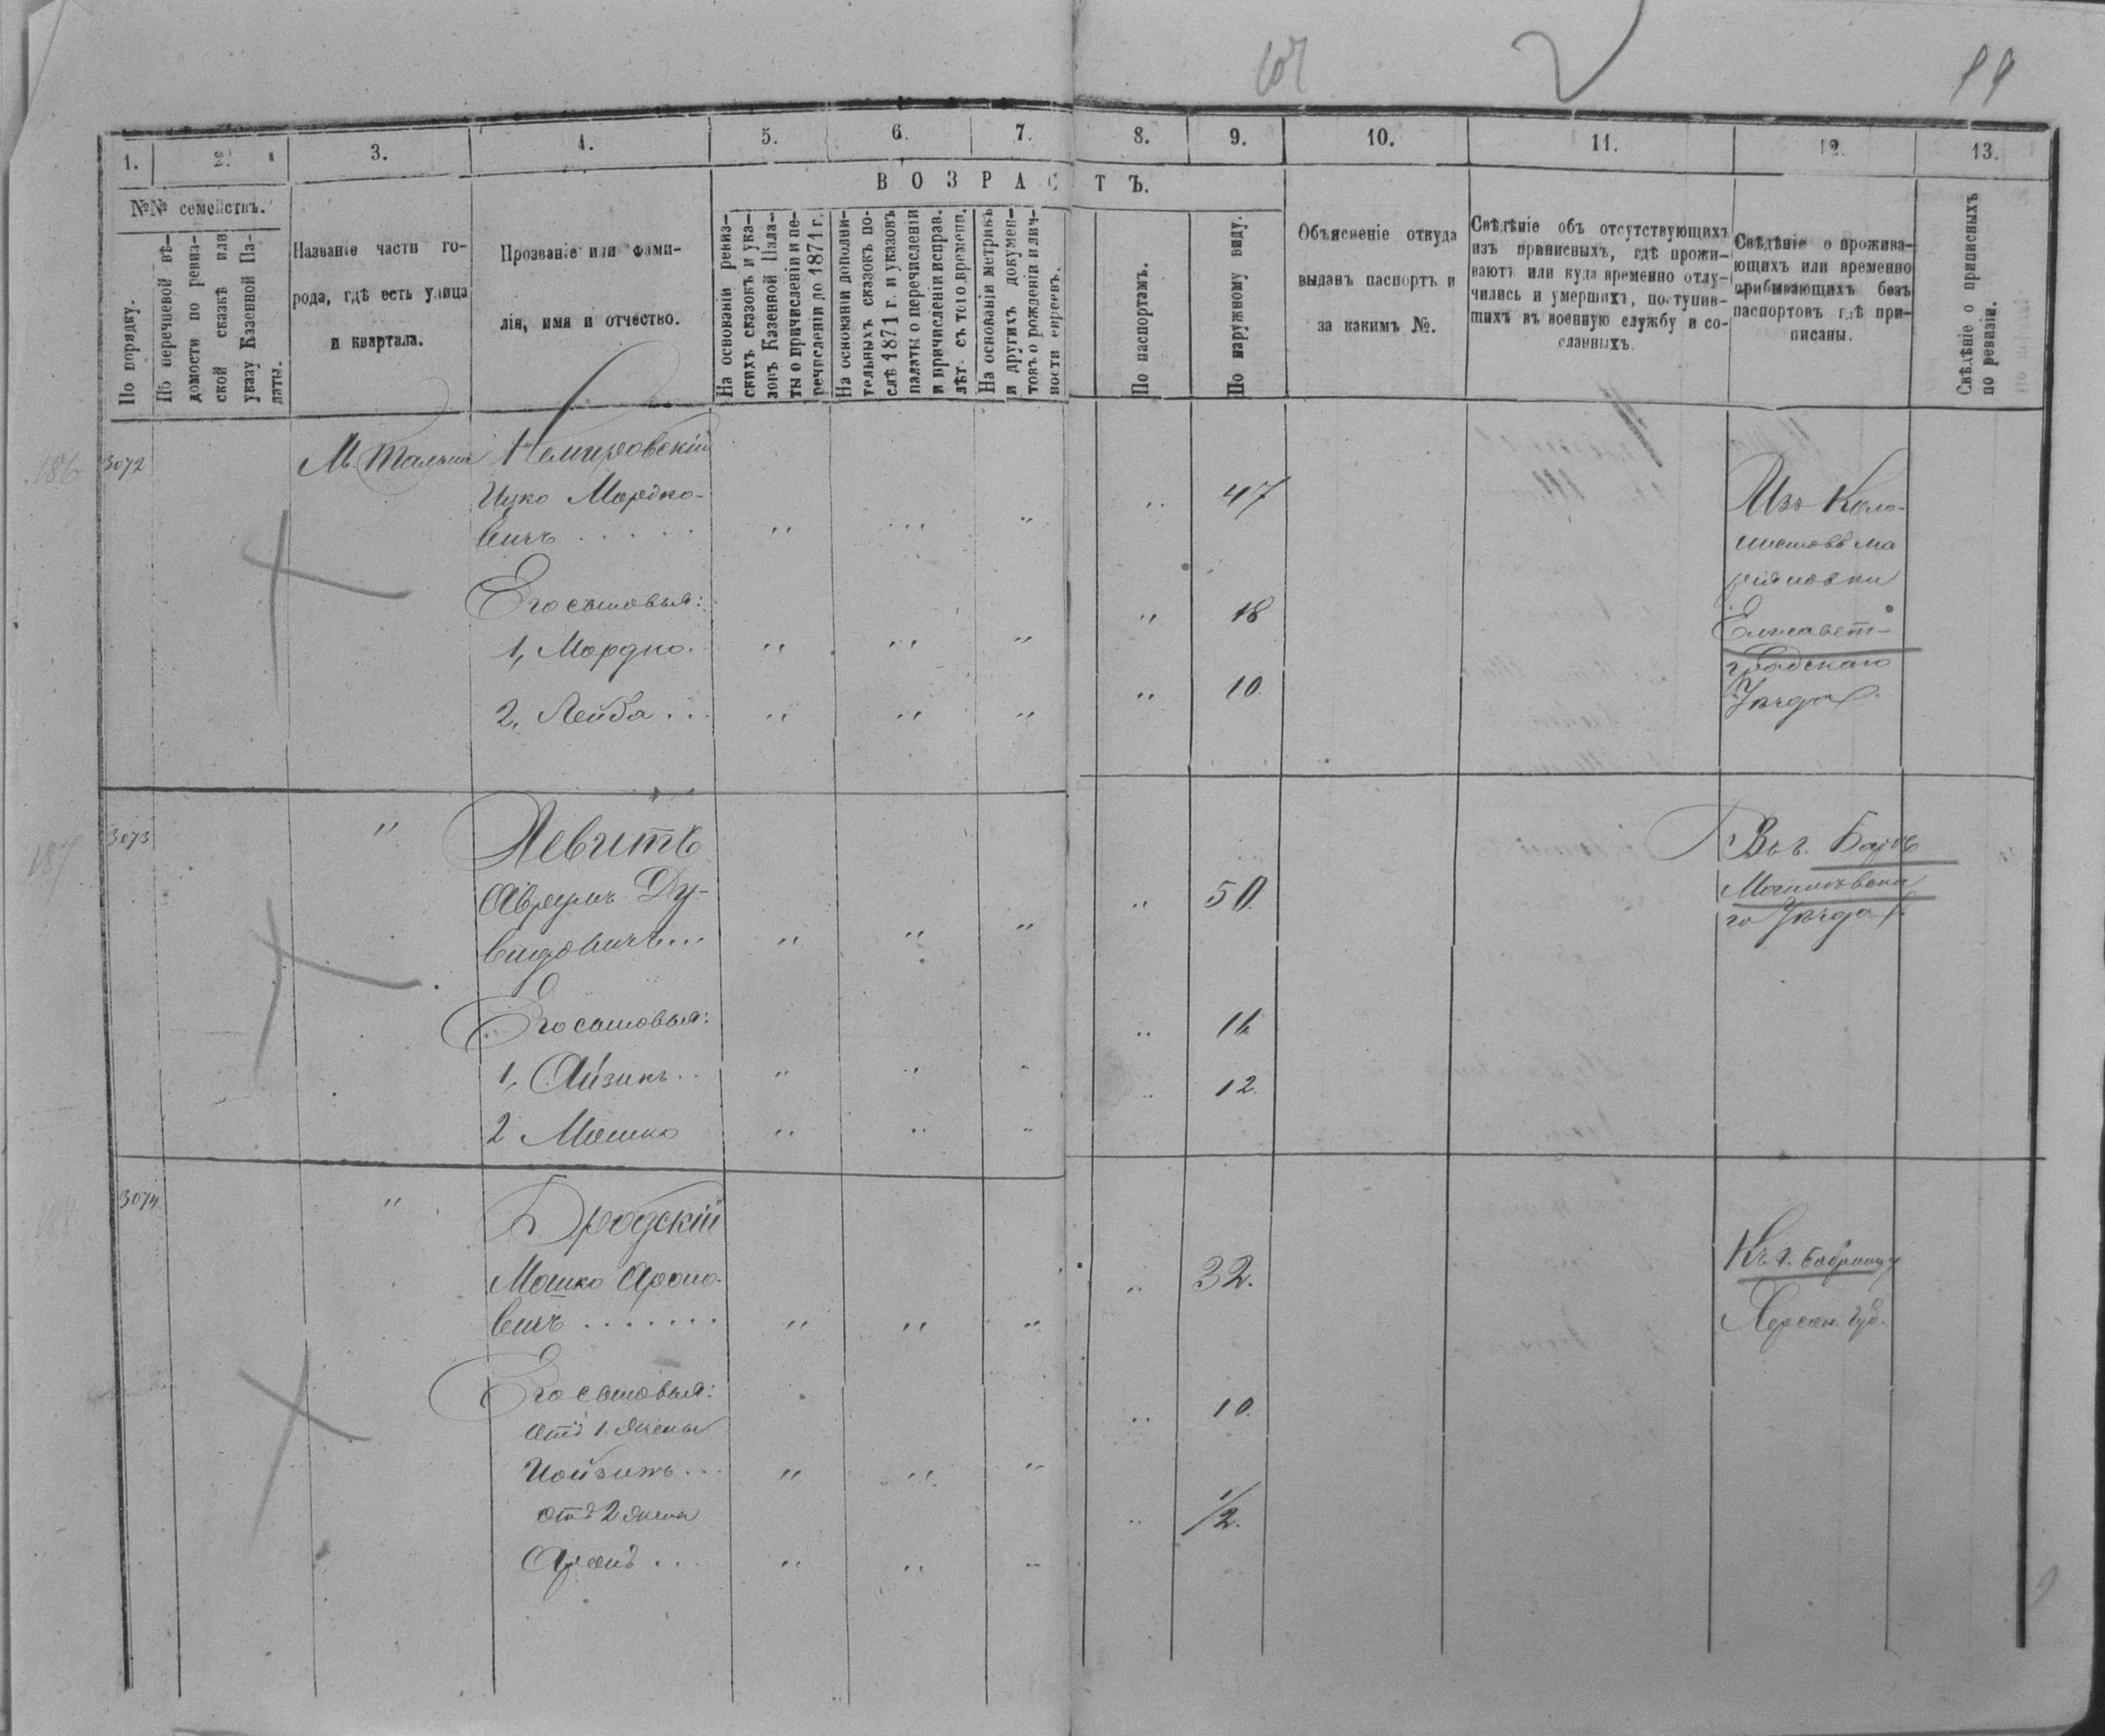 99
1. 2. 3. 4. 5. 6. 7. 8. 9. 10. 11. 12. 13.
В О З Р А С Т Ъ.
№№ семействъ.
По порядку.
По перечневой вѣ-
домости по ревиз-
ской сказкѣ или
указу Казенной Па-
латы.
Названіе части го-
рода, гдѣ есть улица
и квартала.
Прозваніе или фами-
лія, имя и отчество.
На основаніи ревиз-
скихъ сказокъ и ука-
зовъ Казенной Пала-
ты о причисленіи и пе-
речисленіи до 1871 г.
На основаніи дополни-
тельныхъ сказокъ по-
слѣ 1871 г. и указовъ
палаты о перечисленіи
и причисленіи исправ.
лѣт. съ того времени.
На основаніи метрикъ
и другихъ докумен-
товъ о рожденіи и лич-
ности евреевъ.
По паспортамъ.
По наружному виду.
Объясненіе откуда
выданъ паспортъ и
за какимъ №.
Свѣдѣніе объ отсутствующихъ
изъ приписныхъ, гдѣ прожи-
ваютъ или куда временно отлу-
чились и умершихъ, поступив-
шихъ въ военную службу и со-
сланныхъ.
Свѣдѣніе о прожива-
ющихъ или временно
прибывающихъ безъ
паспортовъ гдѣ при-
писаны.
Свѣдѣніе о приписныхъ
по ревизіи.
186 3072 М. Тальное Немировскій
Ицко Мордко-
вичъ . . . . . " " " " 47
Его сыновья:
1, Мордко. " " " " 18
2, Лейба . . . " " " " 10.
Изъ Коло-
нистовъ
Елисавет-
градскаго
Уѣзда.
187 3073 " Левитъ
Аврумъ Ду-
видовичъ... " " " " 50.
Его сыновья:
1, Айзикъ . . " " " " 16
2 Мошко " " " " 12.
Въ г. Барѣ
Могилевска
го Уѣзда.
188 3074 " Бродскій
Мошко Ароно-
вичъ . . . . . . . " " " " 32.
Его сыновья:
отъ 1. жены
. . . " " " " 10.
отъ 2 жены
Аронъ . . . " " " " 1/2.
Къ г. Бобринцу
Херсон. Губ.